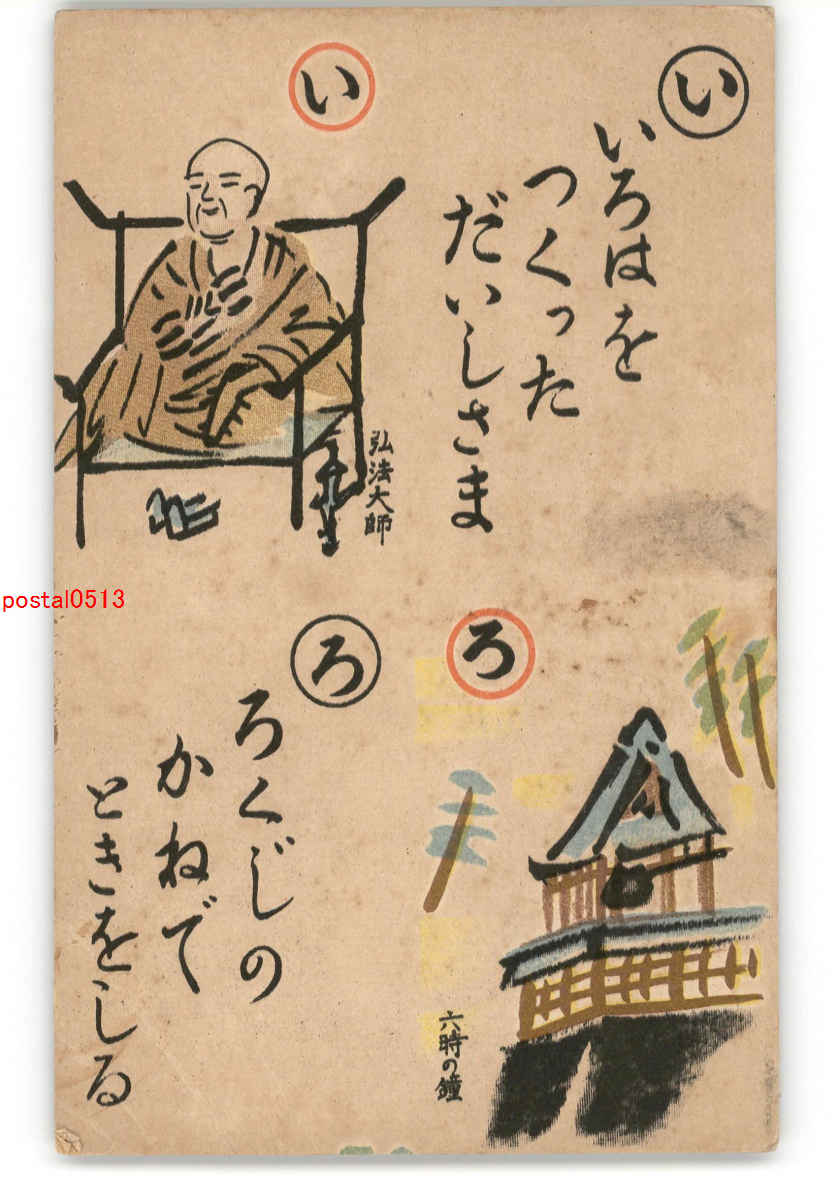 い
いろはを
つくった
だいしさま
い
弘法大師
ろ
六時の鐘
ろ
ろくじの
かねで
ときをしる
postal0513